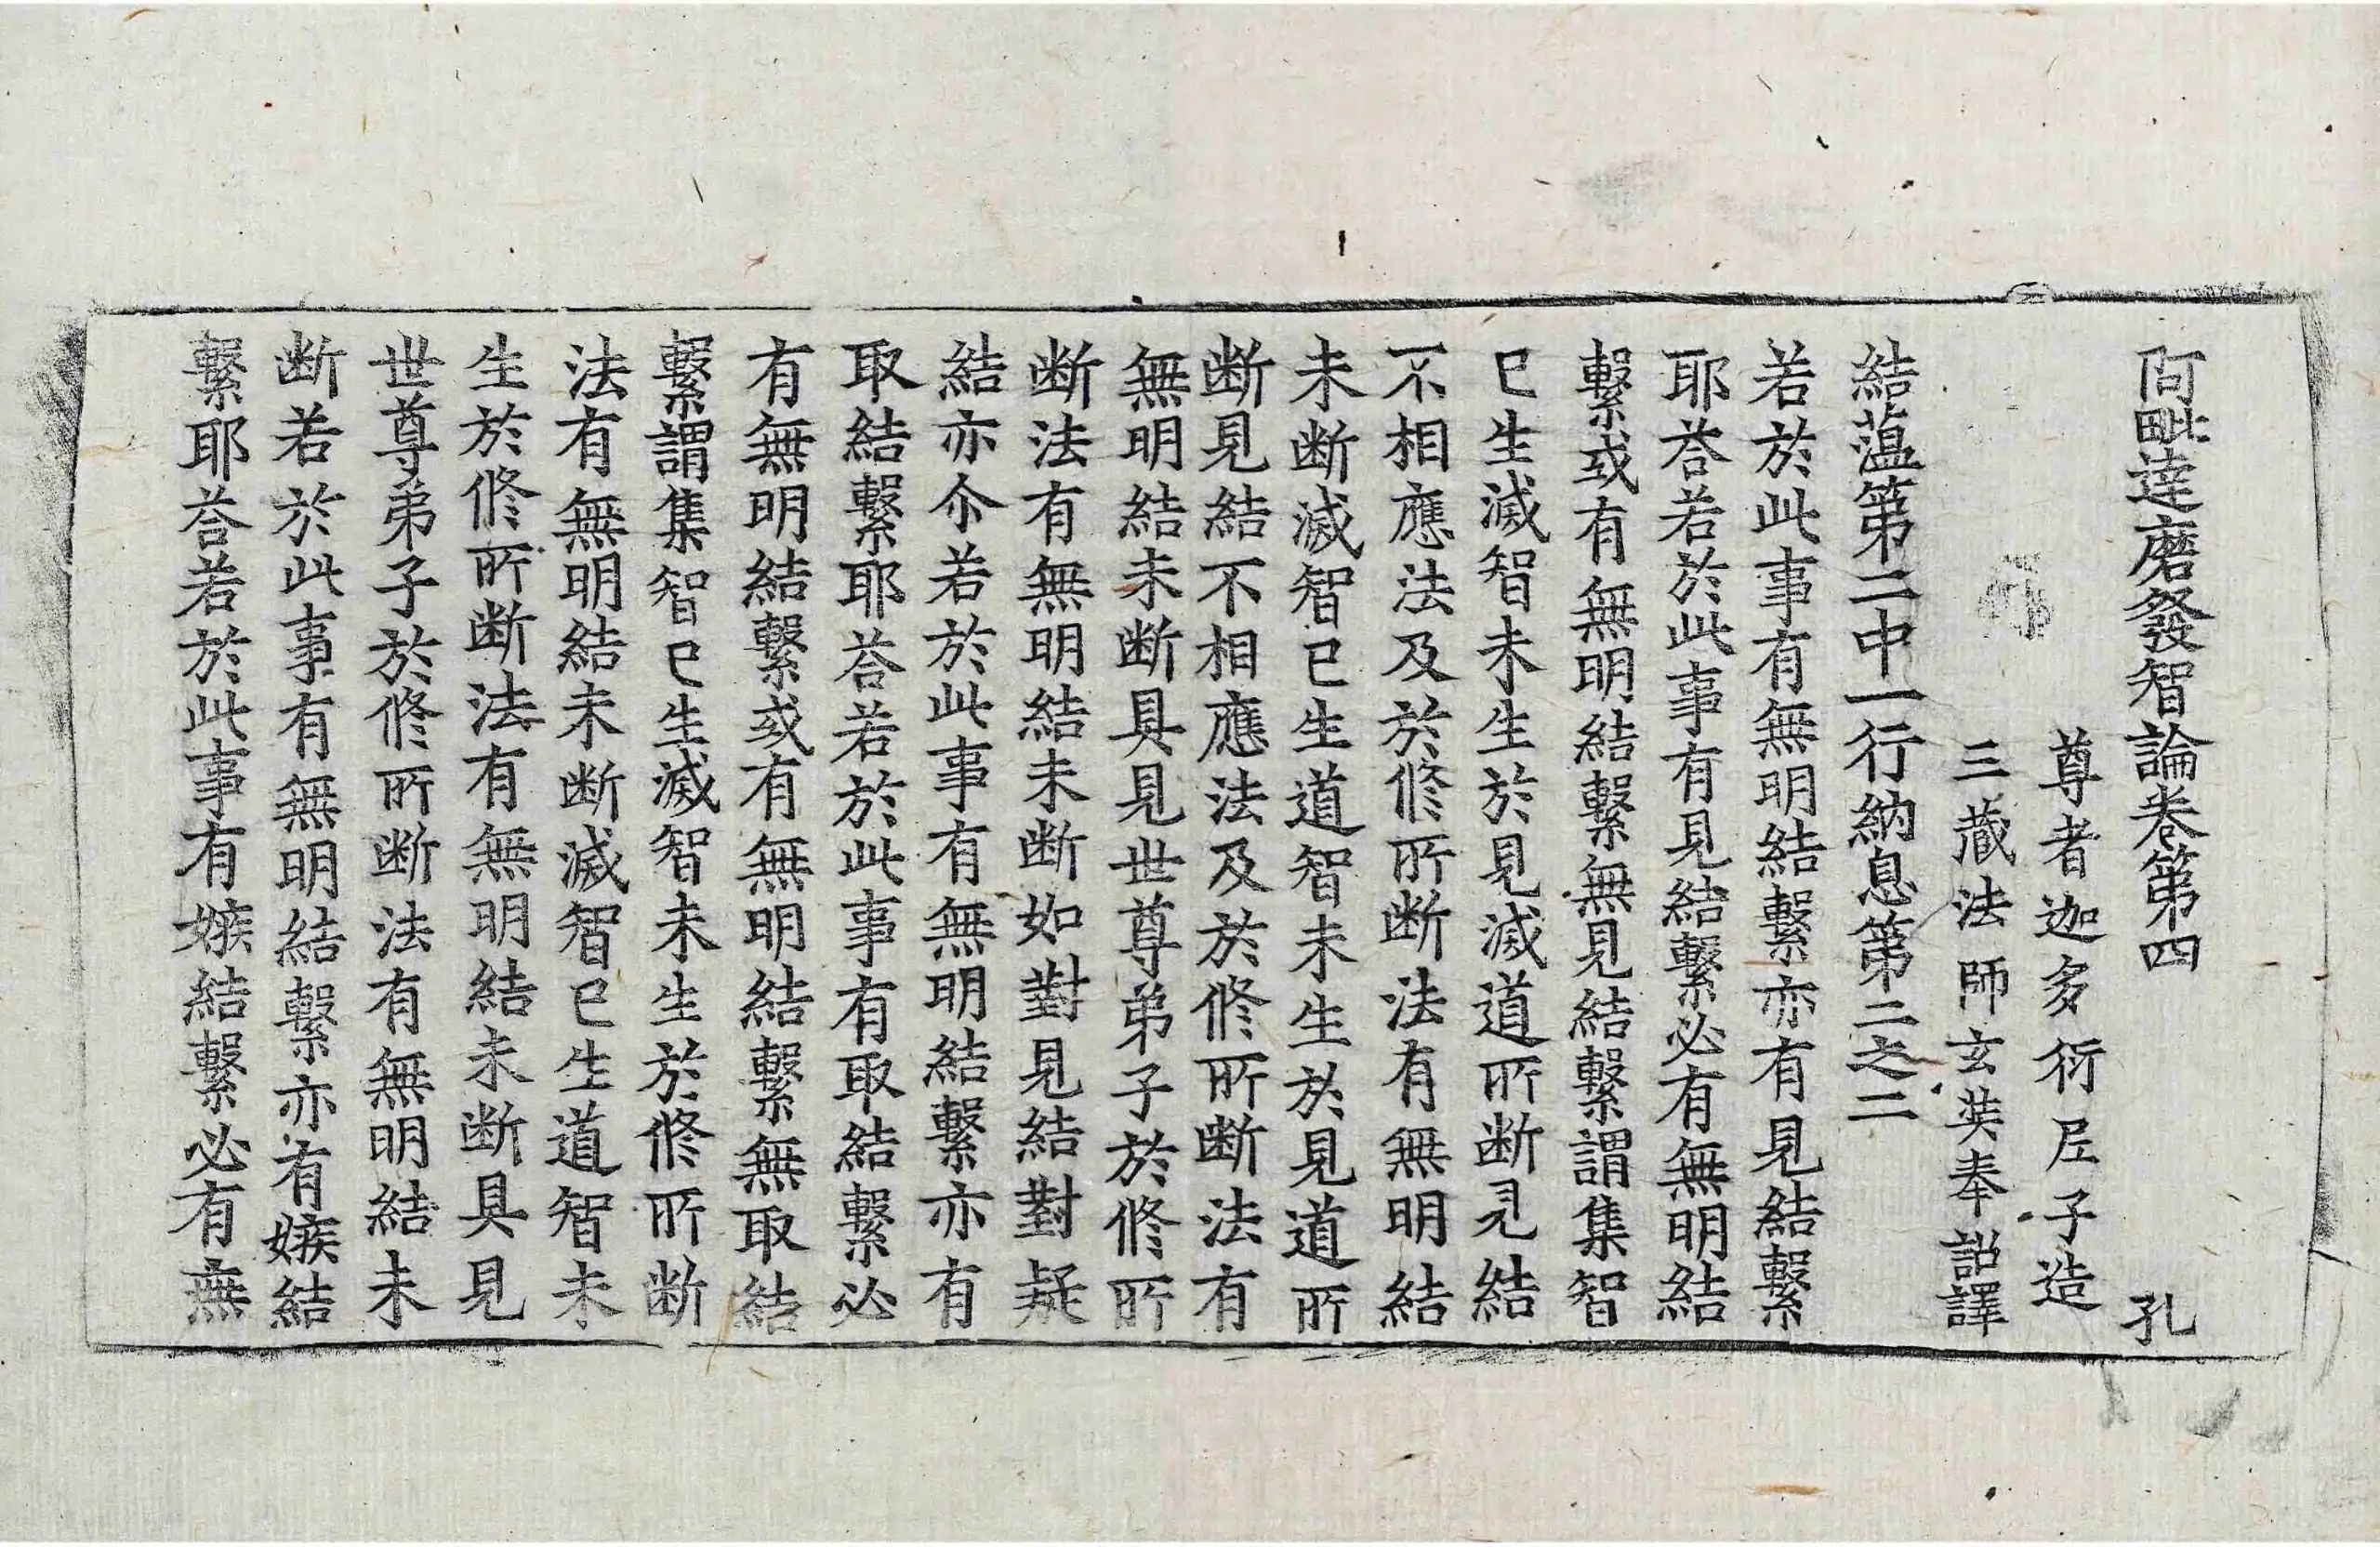 阿毗達磨發智論卷第四 孔
尊者迦多衍尼子造
三藏法師玄奘奉詔譯
結蕰第二中一行納息第二之二
若於此事有無明結繫亦有見結繫
耶荅若於此事有見結繫必有無明結
繫或有無明結繫無見結繫謂集智
已生滅智未生於見滅道所断見結
不相應法及於修所断法有無明結
未断滅智已生道智未生於見道所
断見結不相應法及於修所断法有
無明結未断具見世尊弟子於修所
断法有無明結未断如對見結對疑
結亦尒若於此事有無明結繫亦有
取結繫耶荅若於此事有取結繫必
有無明結繫或有無明結繫無取結
繫謂集智已生滅智未生於修所断
法有無明結未断滅智已生道智未
生於修所断法有無明結未断具見
世尊弟子於修所断法有無明結未
断若於此事有無明結繫亦有嫉結
繫耶荅若於此事有嫉結繫必有無